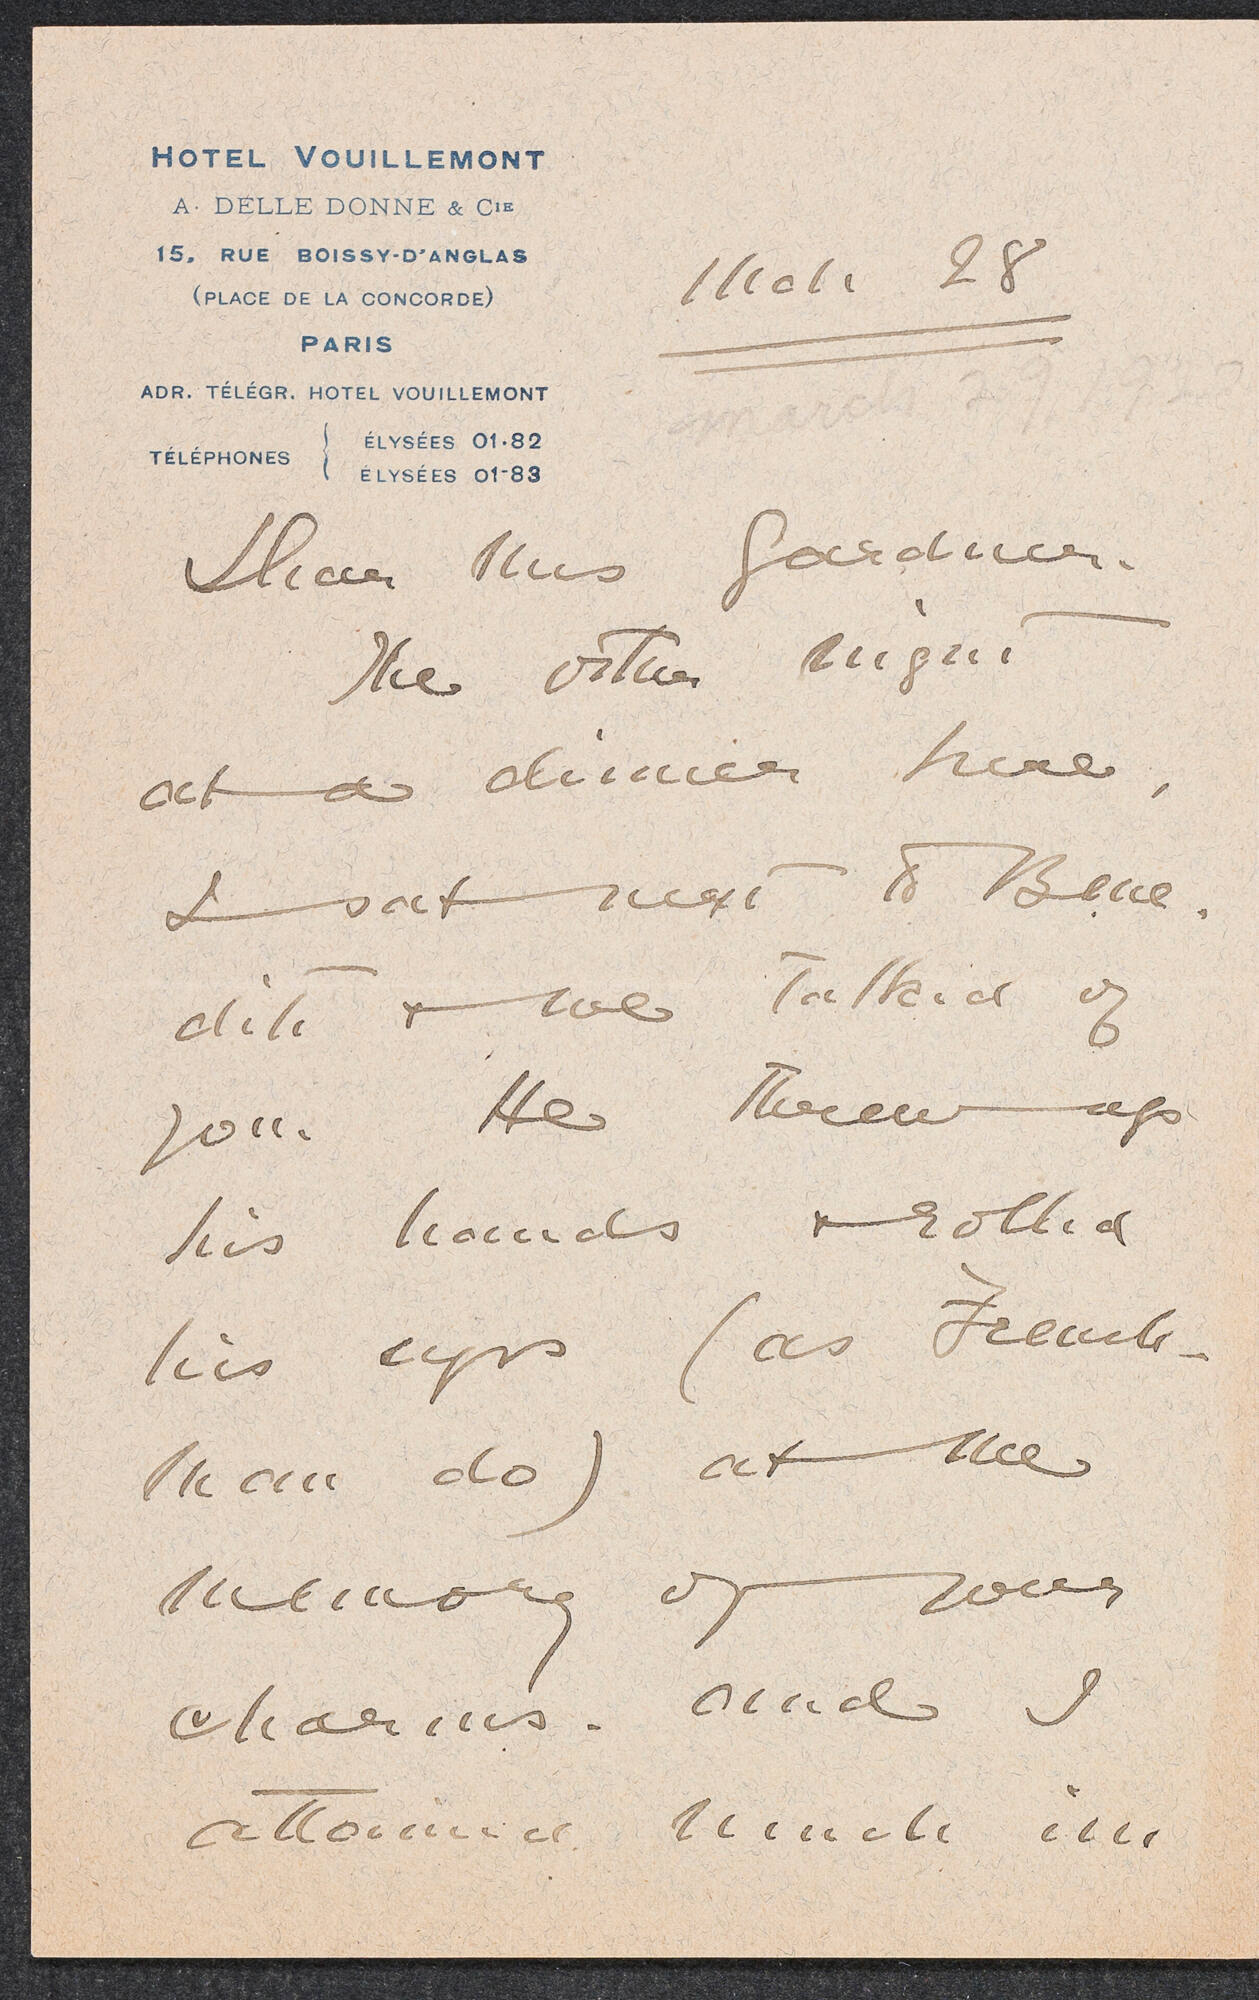 HOTEL VOUILLEMONT
A. DELLE DONNE & CIE
15, RUE BOISSY-D'ANGLAS
(PLACE DE LA CONCORDE)
PARIS
ADR. TÉLÉGR. HOTEL VOUILLEMONT
TÉLÉPHONES { ÉLYSÉES 01.82
ÉLYSÉES 01-83
Mch 28
march 29, 1920
Dear Mrs Gardner.
The other night
at a dinner here,
I sat next to Bene.
dite & we talked of
you. He threw up
his hands & rolled
his eyes (as French-
man do) at the
memory of your
charms. And I
attained much in